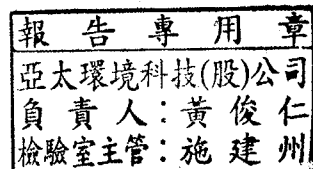 報告專用章
亞太環境科技(股)公司
負責人:黃俊仁
檢驗室主管:施建州